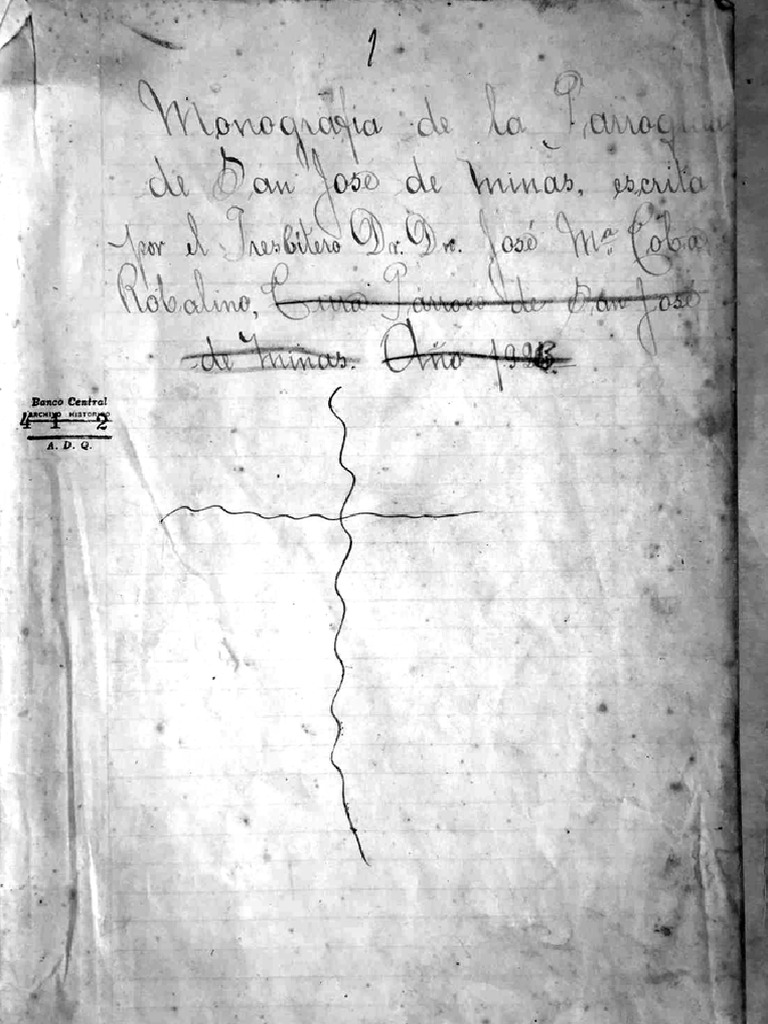 1
Monografia de la Parroquia
de San José de Minas, escrita
por el Presbitero Dr. Dn. José Mª Coba
Robalino, Cura Párroco de San José
de Minas. Año
Banco Central
ARCHIVO HISTORICO
4 1 2
A. D. Q.